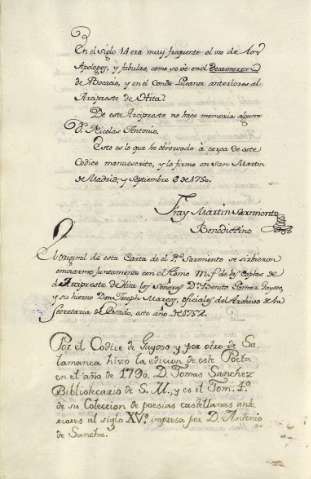 En el siglo 14 era muy frequente el uso de los
Apologos, y fabulas, como se vè en el Decameron
de Bocacio, y en el Conde Lucanor anteriores al
Arcipreste de Hita.
De este Arcipreste no hace memoria alguna
D. Nicolas Antonio.
Esto es lo que he observado à cerca de este
Codice manuscrito, y lo firmo en San Martin
de Madrid, y Septiembre 8 de 1750.
Fray Martin Sarmiento
Benedictino
El original de esta Carta de el P. Sarmiento se sirvieron
juntamente con el tomo m.s. de las Coplas de
el Arcipreste de Hita los Señores D.
y su hermo Don Joseph Marcos, oficiales del Archivo de la
Secretaria de Estado, este año de 1752.
Por el Codice de Gayoso y por otro de Sa-
lamanca hizo la edicion de este Poeta
en el año de 1790. D. Tomas Sanchez
Bibliotecario de S. M., y es el Tom. 4º
de su Coleccion de poesias castellanas ant-
eriores al siglo XVº impresa por D. Antonio
de Sancha.